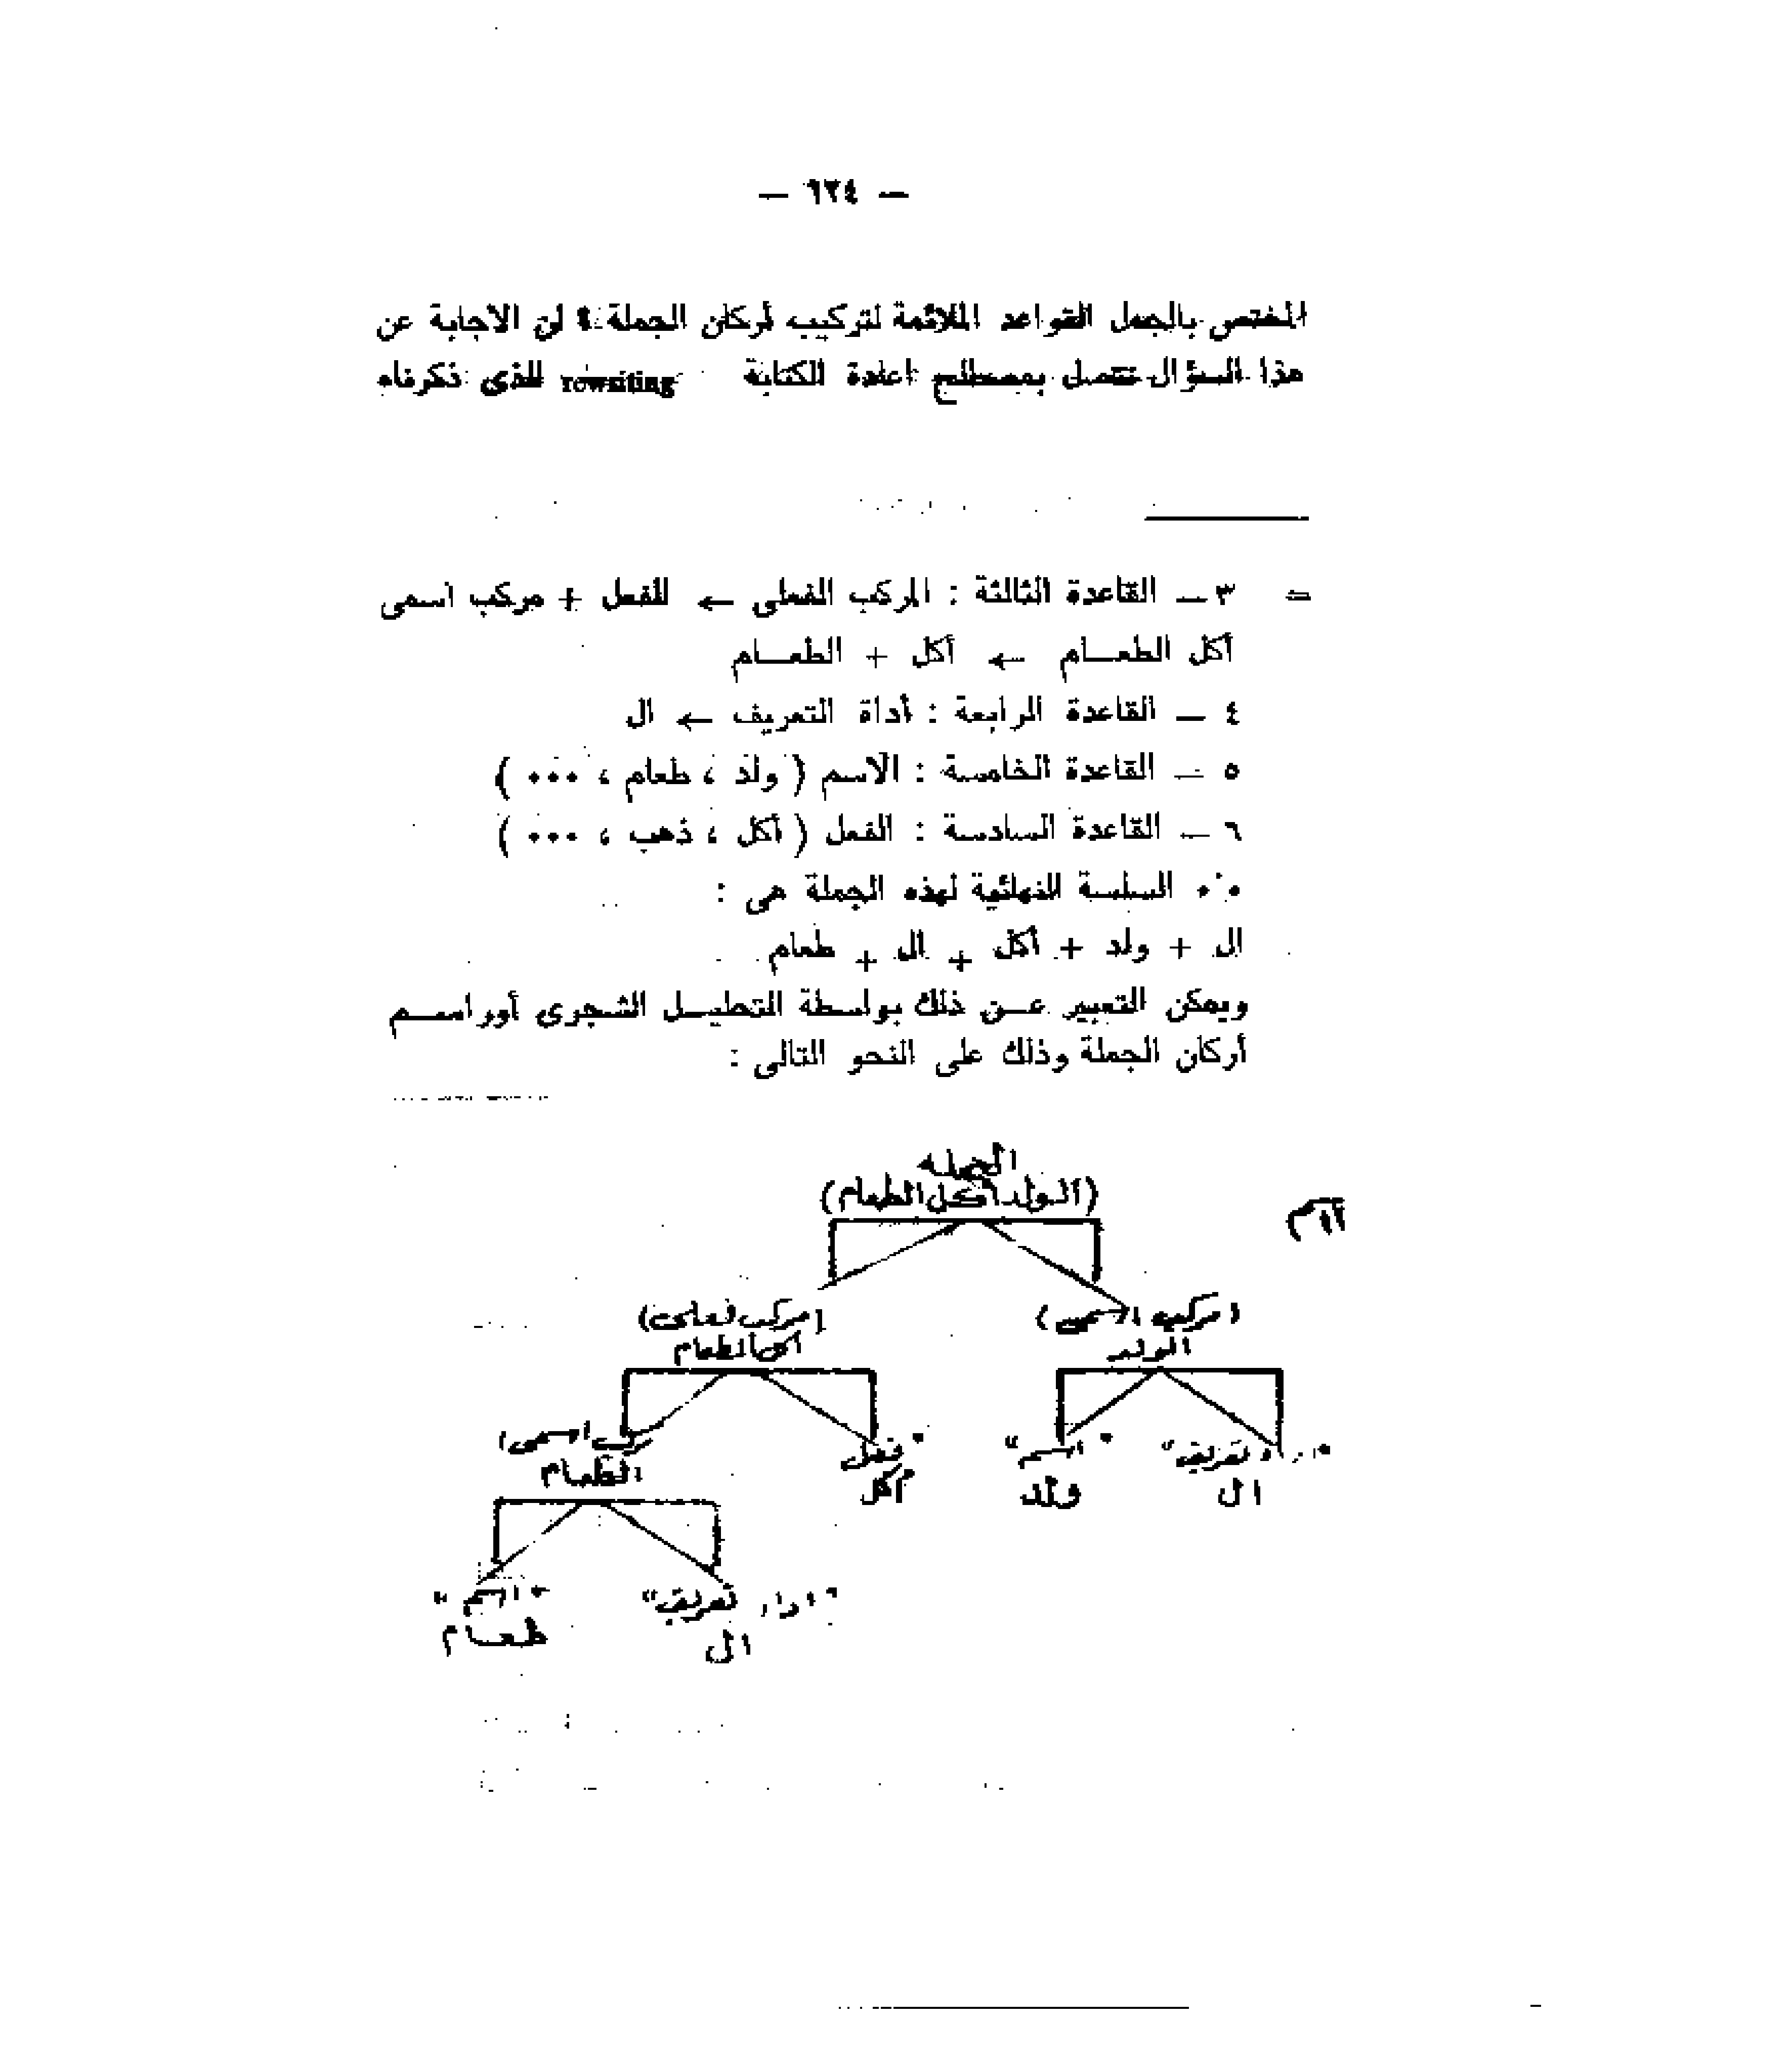 — ٦٢٤ —
المختص بالجمل القواعد الملائمة لتركيب أركان الجملة؟ ان الاجابة عن
هذا السؤال تتصل بمصطلح اعادة الكتابة rewriting الذى ذكرناه
= ٣ — القاعدة الثالثة : المركب الفعلى ← الفعل + مركب اسمى
أكل الطعـــام ← أكل + الطعـــام
٤ — القاعدة الرابعة : أداة التعريف ← ال
٥ — القاعدة الخامسة : الاسم ( ولد ، طعام ، ٠٠٠ )
٦ — القاعدة السادسة : الفعل ( أكل ، ذهب ، ٠٠٠ )
٠٠ السلسة النهائية لهذه الجملة هى :
ال + ولد + أكل + ال + طعام
ويمكن التعبير عـــن ذلك بواسطة التحليـــل الشجرى أو راســـم
أركان الجملة وذلك على النحو التالى :
الجمله
(الولد أكل الطعام)
(مركب اسمى) (مركب فعلى)
الولد أكل الطعام
"اداة تعريف" "اسم" "فعل" مركب اسمى)
ال ولد أكل الطعام
"اداة تعريف" "اسم"
ال طعام